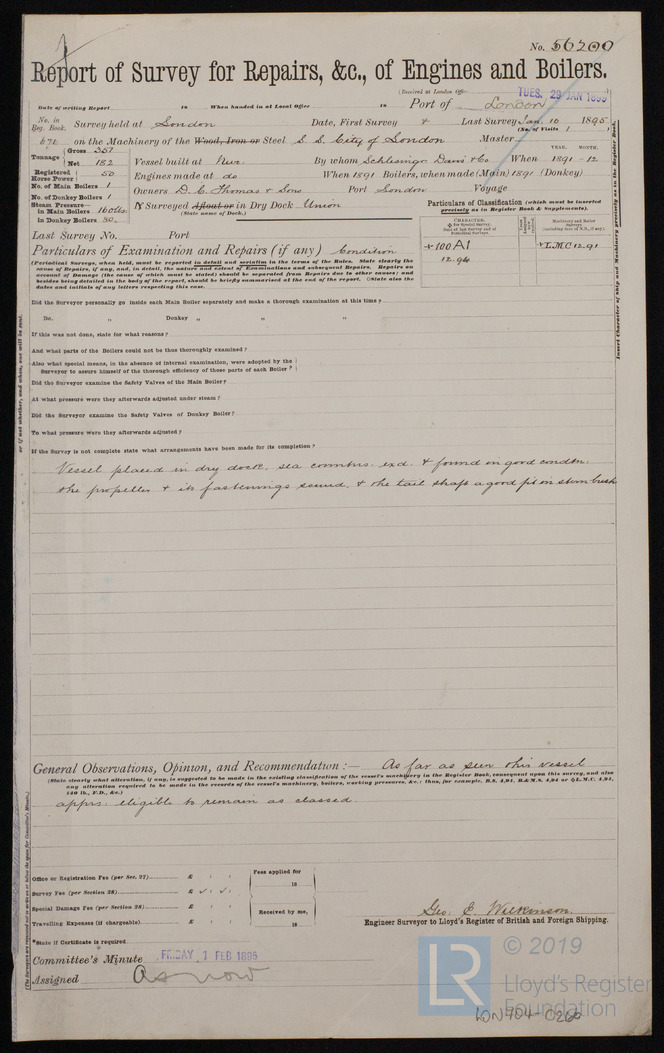 No. 56200
Report of Survey for Repairs, &c., of Engines and Boilers.
(Received at London Office TUES. 29 JAN 1895)
Date of writing Report 18 When handed in at Local Office 18 Port of London
No. in Reg. Book. Survey held at London Date, First Survey & Last Survey Jan. 10 1895
(No. of Visits 1)
671 on the Machinery of the Wood, Iron or Steel S. S. City of London Master
Tonnage Gross 357
Net 182
Vessel built at Nwc. By whom Schlesinger Davis & Co When 1891 - 12
YEAR. MONTH.
Registered Horse Power 50 Engines made at do When 1891 Boilers, when made (Main) 1891 (Donkey)
No. of Main Boilers 1 Owners D. C. Thomas & Sons Port London Voyage
No. of Donkey Boilers 1
Steam Pressure—
in Main Boilers 160 lbs.
in Donkey Boilers 80
If Surveyed Afloat or in Dry Dock Union
(State name of Dock.)
Particulars of Classification (which must be inserted
precisely as in Register Book & Supplements).
CHARACTER.
Machinery and Boiler Surveys
+100A1 +LMC 12.91
12.94
Last Survey No. Port
Particulars of Examination and Repairs (if any) Condition
(Periodical Surveys, when held, must be reported in detail and seriatim in the terms of the Rules. State clearly the
cause of Repairs, if any, and, in detail, the nature and extent of Examinations and subsequent Repairs. Repairs on
account of Damage (the cause of which must be stated) should be separated from Repairs due to other causes; and
besides being detailed in the body of the report, should be briefly summarised at the end of the report. State also the
dates and initials of any letters respecting this case.
Did the Surveyor personally go inside each Main Boiler separately and make a thorough examination at this time?
Do. „ Donkey „ „ „
If this was not done, state for what reasons?
And what parts of the Boilers could not be thus thoroughly examined?
Also what special means, in the absence of internal examination, were adopted by the
Surveyor to assure himself of the thorough efficiency of those parts of each Boiler?
Did the Surveyor examine the Safety Valves of the Main Boiler?
At what pressure were they afterwards adjusted under steam?
Did the Surveyor examine the Safety Valves of Donkey Boiler?
To what pressure were they afterwards adjusted?
If the Survey is not complete state what arrangements have been made for its completion?
Vessel placed in dry dock, sea connctns. exd. & found in good condtn.
the propeller & its fastenings sound, & the tail shaft a good fit in stern bush
General Observations, Opinion, and Recommendation:— As far as seen this vessel
(State clearly what alteration, if any, is suggested to be made in the existing classification of the vessel's machinery in the Register Book, consequent upon this survey, and also
any alteration required to be made in the records of the vessel's machinery, boilers, working pressures, &c.; thus, for example, B.S. 4,94, B.&M.S. 4,94 or L.M.C. 4,94,
140 lb., F.D., &c.)
apprs. eligible to remain as classed.
Office or Registration Fee (per Sec. 27) £ Fees applied for
Survey Fee (per Section 28) £ 18
Special Damage Fee (per Section 28) £ Received by me,
Travelling Expenses (if chargeable) £ 18
Geo. E. Wilkinson
Engineer Surveyor to Lloyd's Register of British and Foreign Shipping.
*State if Certificate is required
Committee's Minute FRIDAY 1 FEB 1895
Assigned As now
LR
© 2019
Lloyd's Register
Foundation
LON904-0266